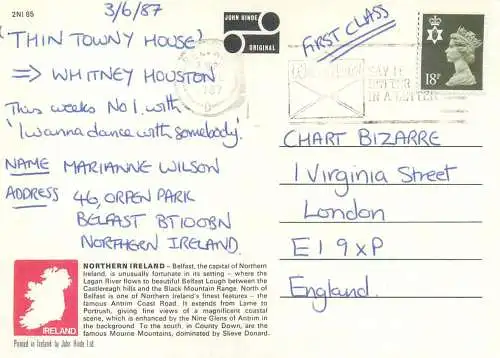 2NI 85
3/6/87
'THIN TOWNY HOUSE'
⇒ WHITNEY HOUSTON
This weeks No 1. with
'I wanna dance with somebody.'
NAME MARIANNE WILSON
ADDRESS 46, ORPEN PARK
BELFAST BT10 0BN
NORTHERN IRELAND.
NORTHERN IRELAND – Belfast, the capital of Northern
Ireland, is unusually fortunate in its setting – where the
Lagan River flows to beautiful Belfast Lough between the
Castlereagh hills and the Black Mountain Range. North of
Belfast is one of Northern Ireland's finest features – the
famous Antrim Coast Road. It extends from Larne to
Portrush, giving fine views of a magnificent coastal
scene, which is enhanced by the Nine Glens of Antrim in
the background. To the south, in County Down, are the
famous Mourne Mountains, dominated by Slieve Donard.
IRELAND
Printed in Ireland by John Hinde Ltd.
JOHN HINDE
ORIGINAL
FIRST CLASS
SAY IT
BETTER
IN A LETTER
18P
CHART BIZARRE
1 Virginia Street
London
E1 9XP
England.